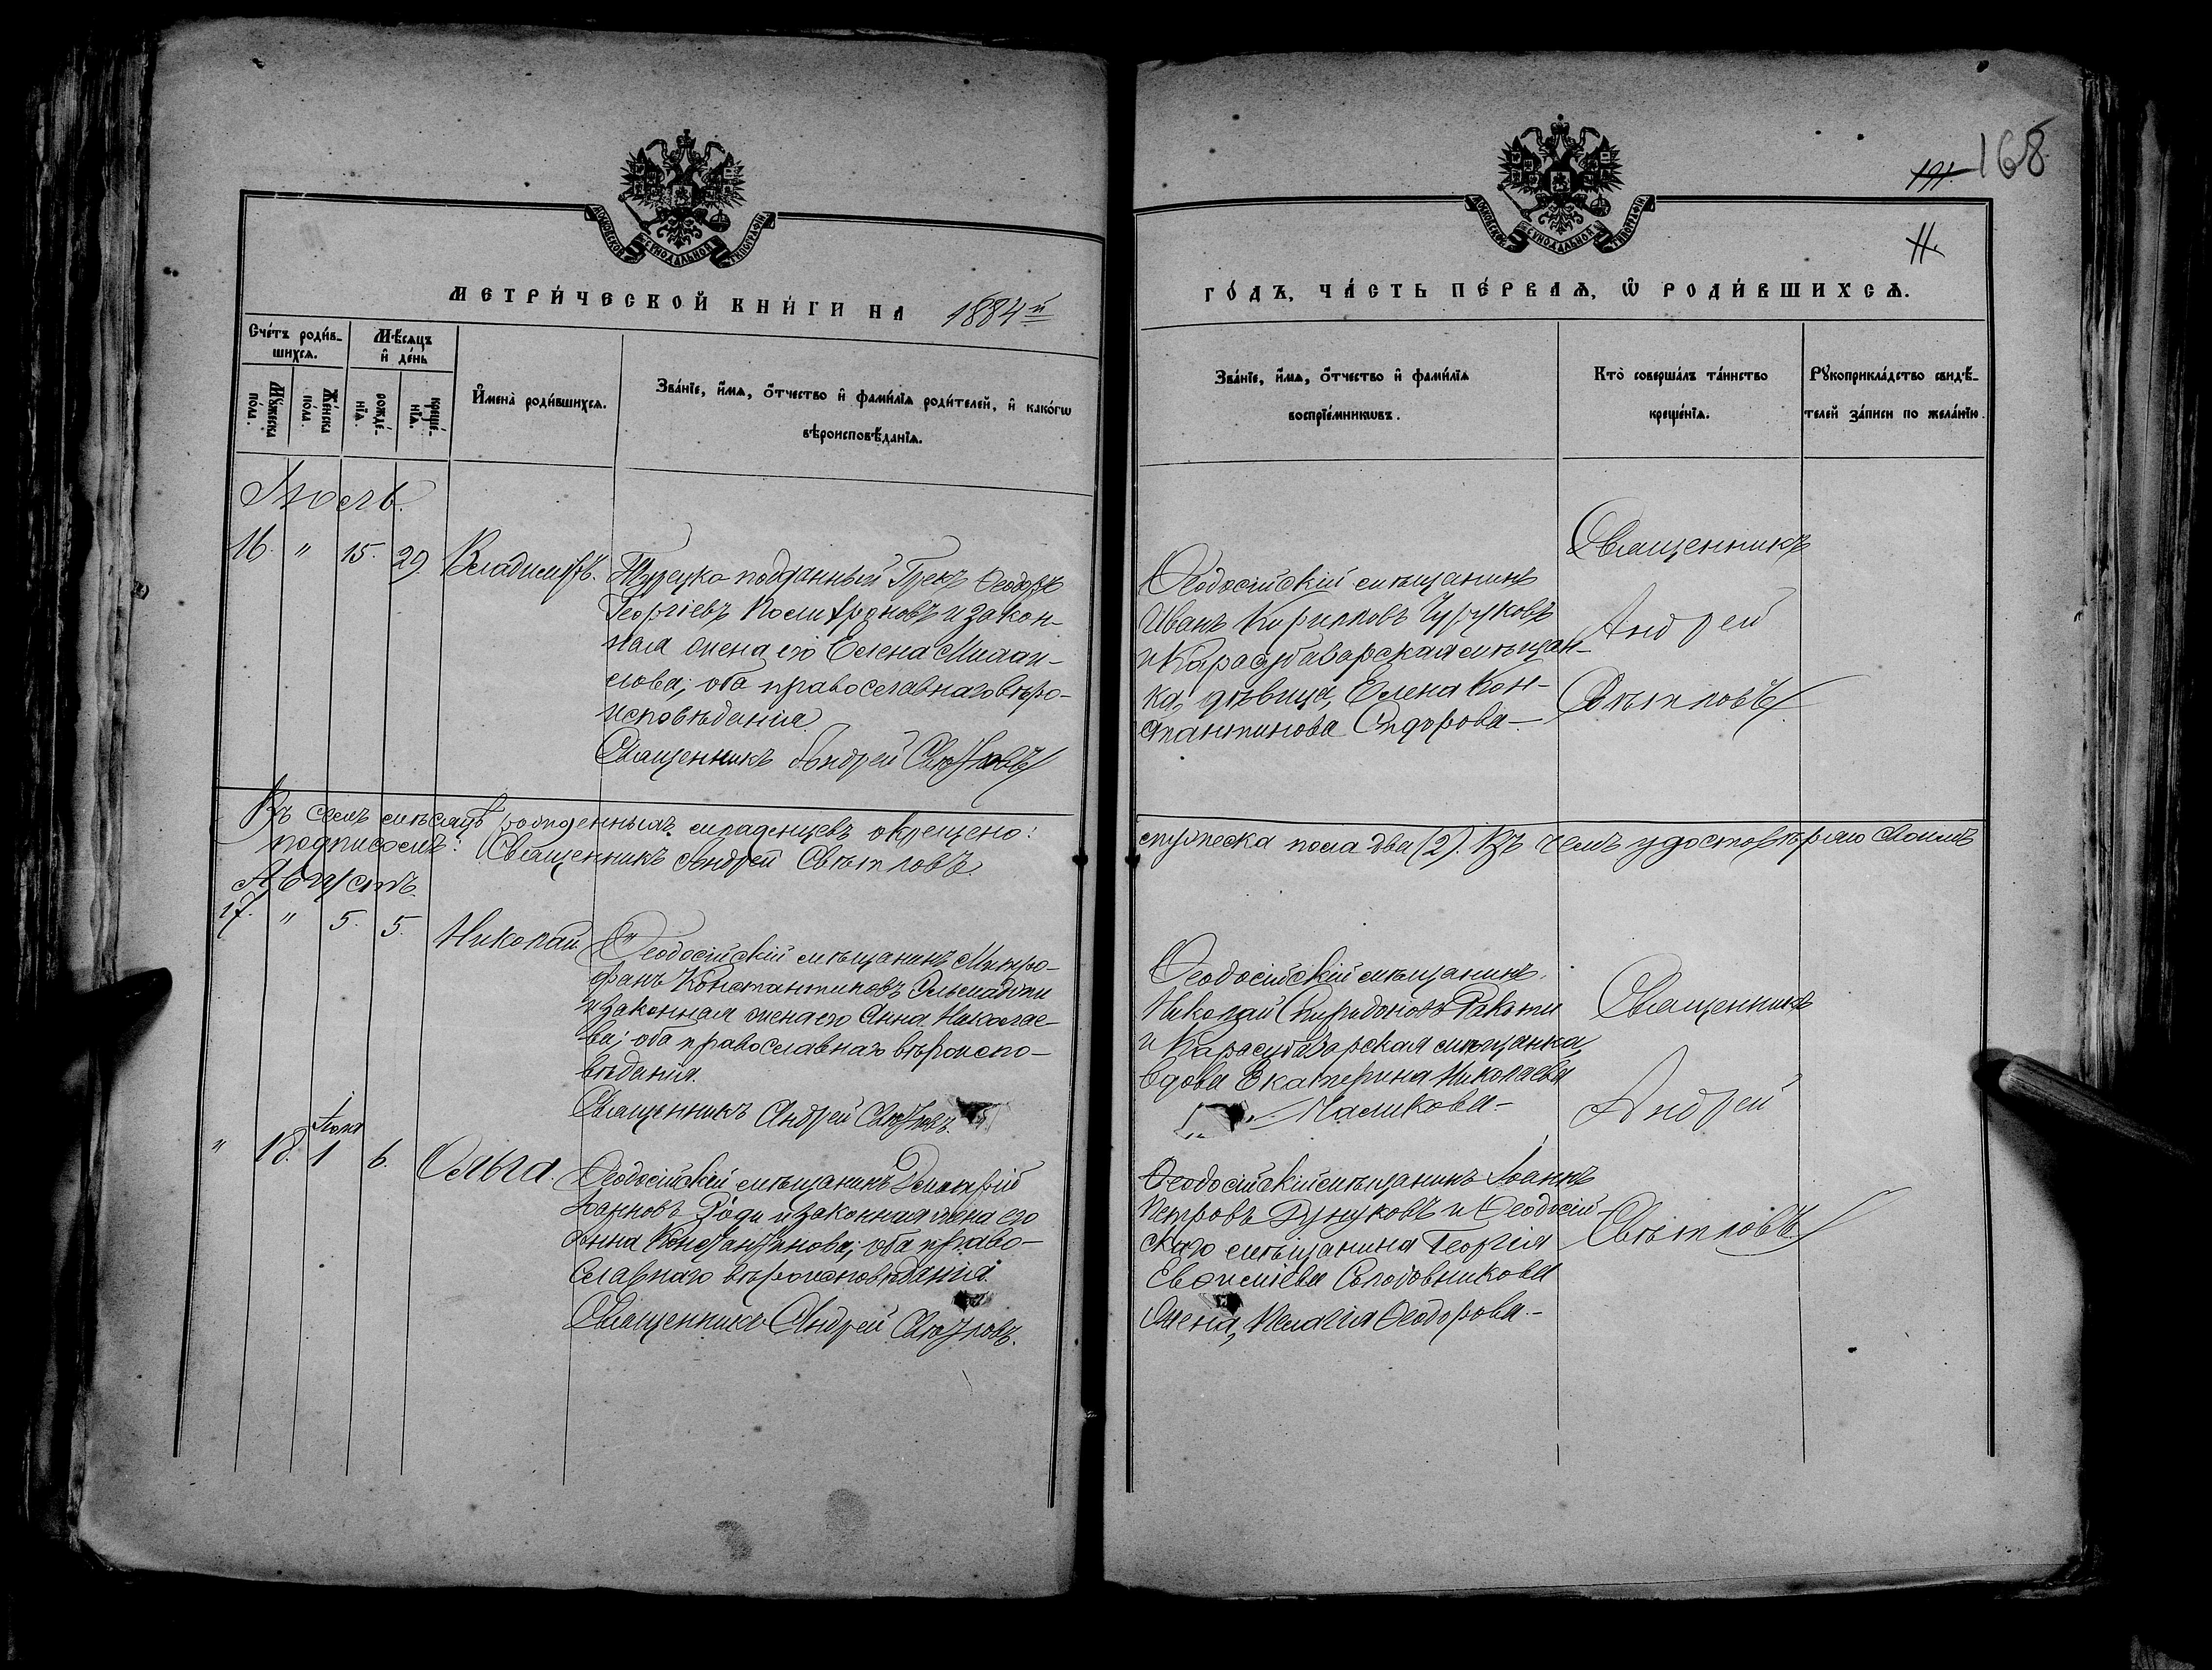 168
191.
11.
МОСКОВСКОЙ СѴНОДАЛЬНОЙ ТИПОГРАФІИ
МЕТРИ́ЧЕСКОЙ КНИ́ГИ НА 1884й
Сче́тъ роди́в-
шихсѧ.
Мѣ́сѧцъ
и҆ де́нь
Мꙋ́жеска
по́ла.
Же́нска
по́ла.
рожде́-
нїѧ.
креще́-
нїѧ.
И҆мена̀ роди́вшихсѧ.
Зва́нїе, и҆́мѧ, ѻ҆́тчество и҆ фами́лїѧ роди́телей, и҆ како́гѡ
вѣроисповѣ́данїѧ.
Іюль.
16. " 15. 29. Владиміръ.
Турецко подданный Грекъ Ѳеодоръ
Георгіевъ и закон-
ная жена его Елена
оба православнаго вѣро-
исповѣданія.
Священникъ Андрей Свѣтловъ
Въ семъ мѣсяцѣ рожденныхъ младенцевъ окрещено:
подписомъ: Священникъ Андрей Свѣтловъ.
Августъ.
17. " 5. 5. Николай
Ѳеодосійскій мѣщанинъ Митро-
фанъ Константиновъ
и законная жена его Анна Николае-
ва; оба православнаго вѣроиспо-
вѣданія.
Священникъ Андрей Свѣтловъ.
" 18. 1 6. Ольга.
Ѳеодосійскій мѣщанинъ Димитрій
Іоанновъ Роди и законная жена его
Анна Константинова; оба право-
славнаго вѣроисповѣданія.
Священникъ Андрей Свѣтловъ.
МОСКОВСКОЙ СѴНОДАЛЬНОЙ ТИПОГРАФІИ
ГО́ДЪ, ЧА́СТЬ ПЕ́РВАѦ, Ѡ҆ РОДИ́ВШИХСѦ.
Зва́нїе, и҆́мѧ, ѻ҆́тчество и҆ фами́лїѧ
воспрїе́мникѡвъ.
Кто̀ соверша́лъ та́инство
креще́нїѧ.
Рꙋкоприкла́дство свидѣ́-
телей за́писи по жела́нїю.
Ѳеодосійскій мѣщанинъ
Иванъ Кирилловъ Чуруковъ
и Карасубазарская мѣщан-
ка, дѣвица, Елена Кон-
стантинова Сидорова.—
Священникъ
Андрей
Свѣтловъ
мужеска пола два (2). Въ чемъ удостовѣряю своимъ
Ѳеодосійскій мѣщанинъ
Николай Спиридоновъ
и Карасубазарская мѣщанка,
вдова Екатерина Николаева
Маликова.—
Священникъ
Андрей
Свѣтловъ.
Ѳеодосійскій мѣщанинъ Іоаннъ
Петровъ и Ѳеодосій-
скаго мѣщанина Георгія
Солодовникова
жена, Пелагія Ѳеодорова.—